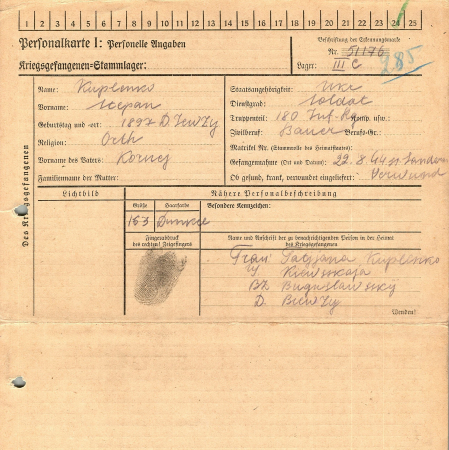 1 2 3 4 5 6 7 8 9 10 11 12 13 14 15 16 17 18 19 20 21 22 23 24 25
Personalkarte I: Personelle Angaben
Kriegsgefangenen-Stammlager:
Beschriftung der Erkennungsmarke
Nr. 51176
285
Lager: III C
Des Kriegsgefangenen
Name: Kuplenko
Vorname: Stepan
Geburtstag und -ort: 1897 D.
Religion: Orth
Vorname des Vaters: Kornej
Familienname der Mutter:
Staatsangehörigkeit: Ukr
Dienstgrad: Soldat
Truppenteil: 180 Inf. Rg Komp. usw.:
Zivilberuf: Bauer Berufs-Gr.:
Matrikel Nr. (Stammrolle des Heimatstaates):
Gefangennahme (Ort und Datum): 22.8.
Ob gesund, krank, verwundet eingeliefert: Verwund
Lichtbild
Nähere Personalbeschreibung
Größe Haarfarbe Besondere Kennzeichen:
163 Dunkel
Fingerabdruck
des rechten! Zeigefingers
Name und Anschrift der zu benachrichtigenden Person in der Heimat
des Kriegsgefangenen
Frau Tatjana Kuplenko
Kiewskaja
Bz Boguslawskij
D.
Wenden!